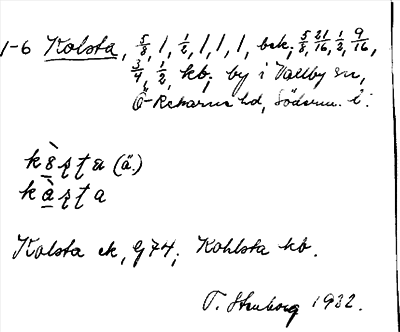 1-6 Kolsta, 5/8, 1, 1/2, 1, 1, 1, bek; 5/8, 21/16, 1/2, 9/16,
3/4, 1/2, kb; by i Vallby sn,
Ö-Rekarne hd, Söderm. l:
(ä.)
Kolsta ek, Gj 74; Kohlsta kb.
T. Stenborg 1932.